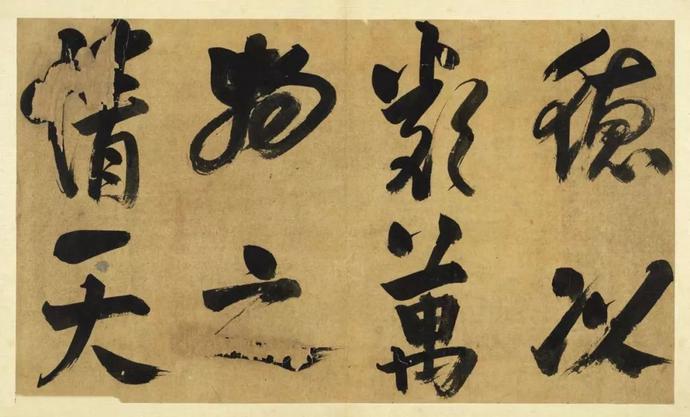 德以
类萬
物之
情天